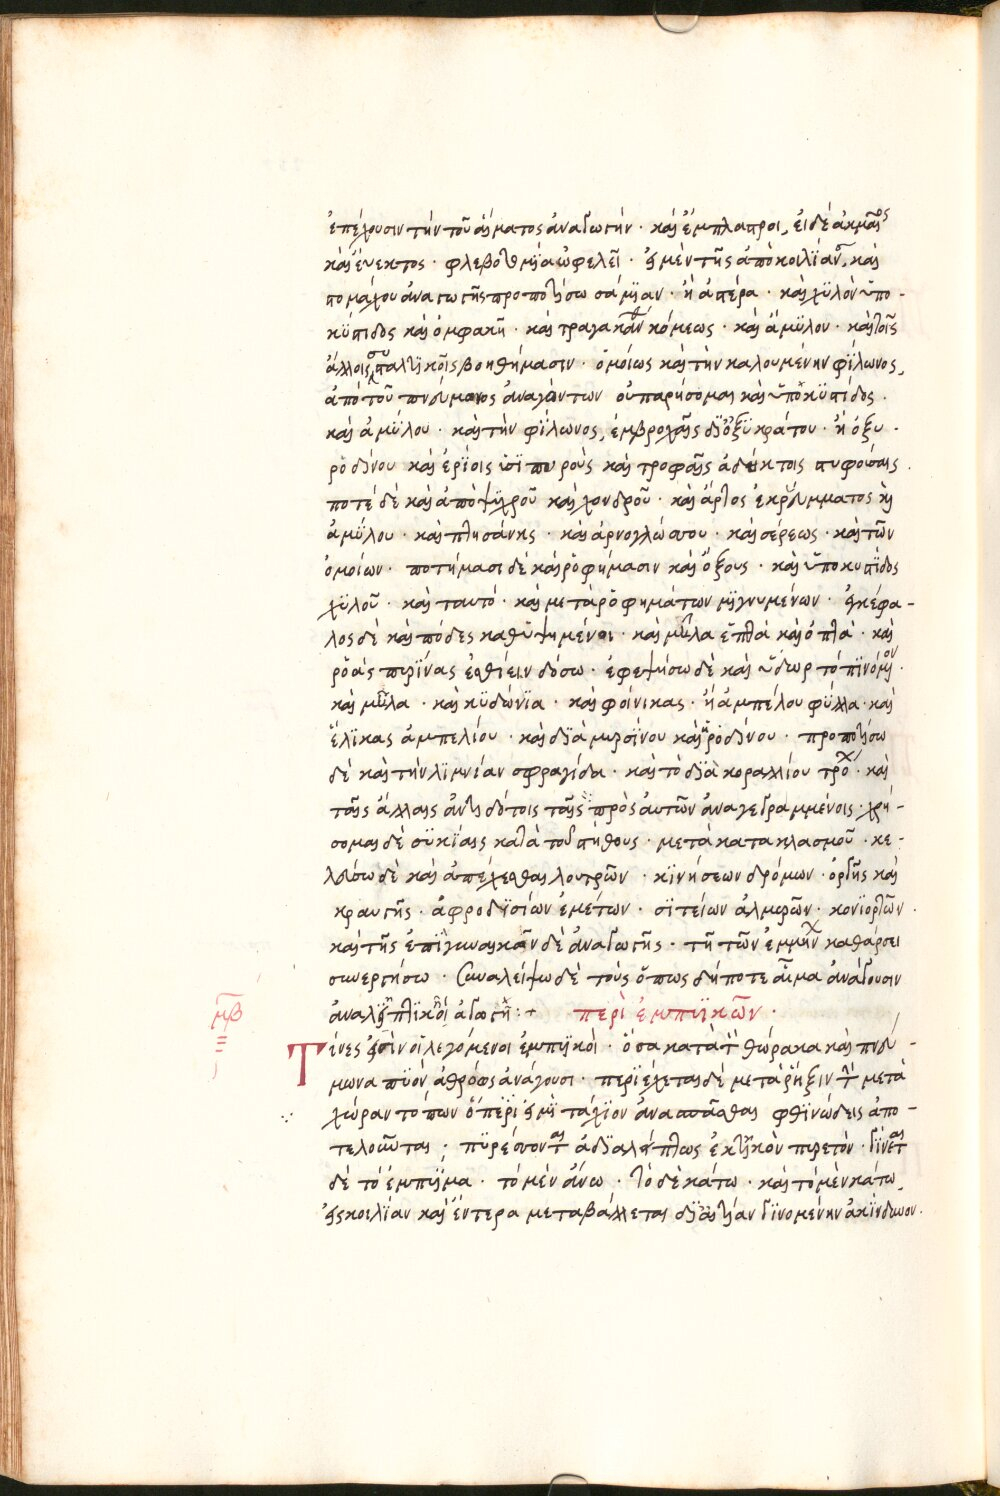 ἐπέχουσιν τὴν τοῦ αἵματος ἀναγωγήν · καὶ ἔμπλαστροι, εἰ δὲ ἀκμαῖος
καὶ εὔεκτος · φλεβοτομία ὠφελεῖ ·
καὶ χυλὸν ὑπο-
κϋστίδος καὶ ὀμφακίῳ · καὶ τραγακάνθου κόμεως · καὶ ἀμύλου · καὶ τοῖς
ἄλλοις σταλτικοῖς βοηθήμασιν · ὁμοίως καὶ τὴν καλουμένην φίλωνος,
ἀπὸ τοῦ πνεύμονος ἀναγόντων καὶ ὑποκϋστίδος ·
καὶ ἀμύλου · καὶ τὴν φίλωνος, ἐμβροχαῖς δι' ὀξϋκράτου · ἢ ὀξυ -
ροδίνου καὶ ἐρίοις καὶ τροφαῖς ἀδήκτοις στυφούσαις ·
ποτὲ δὲ καὶ ἀπὸ ψυχροῦ καὶ χονδροῦ · καὶ ἄρτος καὶ
ἀμύλου · καὶ πτησάνης · καὶ ἀρνογλώσσου · καὶ σέρεως · καὶ τῶν
ὁμοίων · ποτήμασι δὲ καὶ ῥοφήμασιν καὶ ὄξους · καὶ ὑποκυστίδος
χϋλοῦ · καὶ ταυτό · καὶ μετὰ ῥοφημάτων μιγνυμένων · ἐγκέφα -
λος δὲ καὶ πόδες καθεψημένοι · καὶ μῆλα ἑφθὰ καὶ ὀπτά · καὶ
ῥοὰς πυρίνας ἐσθίειν δώσω · ἐφεψήσω δὲ καὶ ὕδωρ τὸ πινόμενον ·
καὶ μῆλα · καὶ κϋδώνϊα · καὶ φοίνικας · ἢ ἀμπέλου φύλλα · καὶ
ἕλικας ἀμπελίου · καὶ διὰ μυρσίνου καὶ ῥοδίνου · προποτίσω
δὲ καὶ τὴν λιμνίαν σφραγίδα · καὶ τὸ διὰ κοραλλίου τροχ · καὶ
ταῖς ἄλλαις ἀντιδότοις ταῖς πρὸς αὐτῶν ἀναγεγραμμένοις · χρή -
σομαι δὲ σϋκίαις κατὰ τοῦ στήθους · μετὰ κατακλασμοῦ · κε -
λεύσω δὲ καὶ ἀπέχεσθαι λουτρῶν · κινήσεων δρόμων · ὀργῆς καὶ
κραυγῆς · ἀφροδισίων ἐμέτων · σιτείων ἁλμυρῶν · κονϊορτῶν ·
καὶ τῆς ἐπὶ γυναικῶν δὲ ἀναγωγῆς · τῇ τῶν ἐμμήν καθάρσει
συνεργήσω · συναλείψω δὲ τοὺς ὅπως δήποτε αἷμα ἀνάγουσιν
ἀναληπτικῇ ἀγωγῇ :+ περὶ ἐμπυϊκῶν ·
μβ
Τίνες εἰσὶν οἱ λεγόμενοι ἐμπυϊκοὶ · ὅσα κατὰ τὸν θώρακα καὶ πνεύ -
μωνα πϋὸν ἀθρόως ἀνάγουσι · περιέχεται δὲ μετὰ ῥῆξιν τὴν μετὰ
χώραν τόπων ὅπερ εἰ μὴ τάχιον ἀνασπᾶσθαι φθινώδεις ἀπο -
τελοῦνται ; πϋρέσσονται ἀδιαλήπτως ἑκτικὸν πυρετόν · γίνεται
δὲ τὸ ἐμπύημα · τὸ μὲν ἄνω · τὸ δὲ κάτω · καὶ τὸ μὲν κάτω,
εἰς κοιλίαν καὶ ἔντερα μεταβάλλεται γινομένην ἀκίνδυνον ·